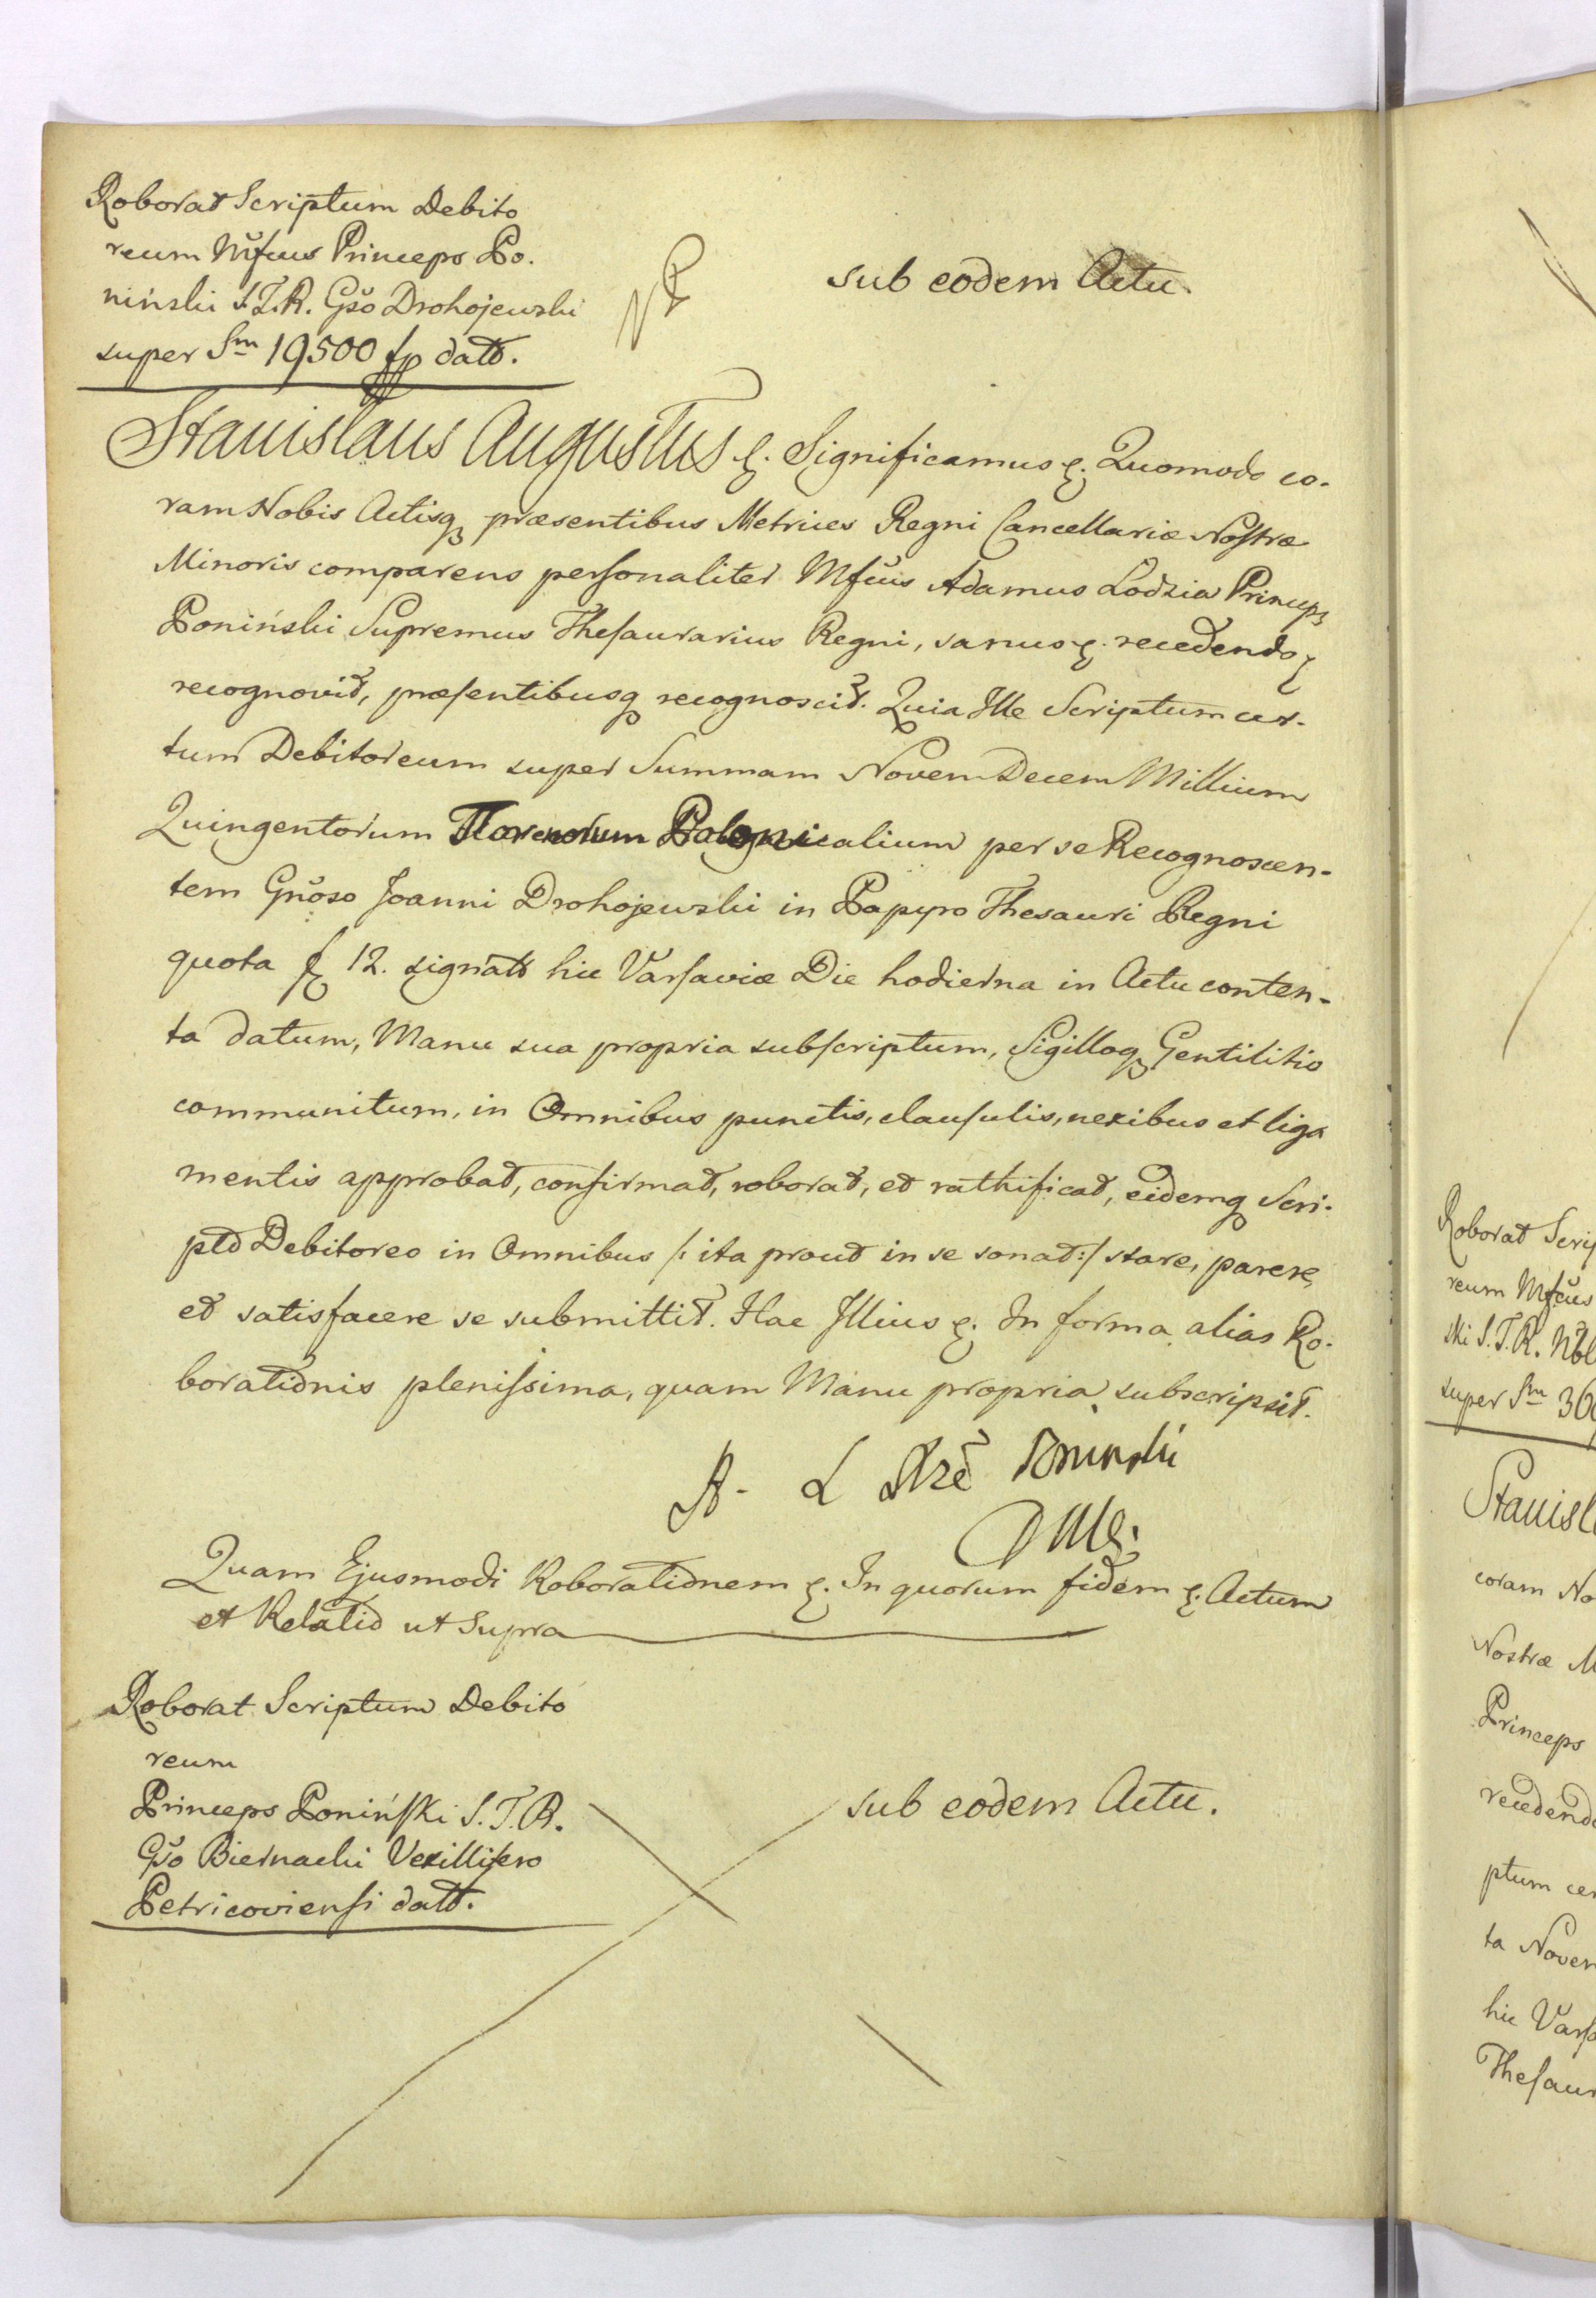 Roborat Scriptum Debito
reum Mfcus Princeps Po.
niński S.T.R. Gso Drohojewski
super Sm 19500 fp datt.
sub eodem Actu.
Stanislaus Augustus &. Significamus &. Quomodo co-
ram Nobis Actisq præsentibus Metrices Regni Cancellariæ Nostræ
Minoris comparens personaliter Mfcus Adamus Lodzia Princeps
Poniński Supremus Thesaurarius Regni, sanus &. recedendo &
recognovit, præsentibusq recognoscit. Quia Ille Scriptum cer-
tum Debitoreum super Summam Novem Decem Millium
Quingentorum Florenorum Polonicalium per se Recognoscen-
tem Gnoso Joanni Drohojewski in Papyro Thesauri Regni
quota f 12. signatt hic Varsaviæ Die hodierna in Actu conten-
ta datum, Manu sua propria subscriptum, Sigilloq Gentilitio
communitum, in Omnibus punctis, clausulis, nexibus et liga
mentis approbat, confirmat, roborat, et rathificat, eidemq Scri-
pto Debitoreo in Omnibus /: ita prout in se sonat :/ stare, parere,
et satisfacere se submittit. Hac Illius &. In forma alias Ro-
borationis plenissima, quam Manu propria subscripsit.
A. L Xże Poninski
Quam Ejusmodi Roborationem &. In quorum fidem &. Actum
et Relatio ut Supra
Roborat Scriptum Debito
reum
Princeps Poniński S.T.R.
Gso Biernacki Vexillifero
Petricoviensi datt.
sub eodem Actu.
Roborat Scrip
reum Mfcus
ski S.T.R. Nbl
super Sm 36
Stanisl
coram No
Nostræ M
Princeps
recedendo
ptum cer
ta Novem
hic Varsa
Thesaur